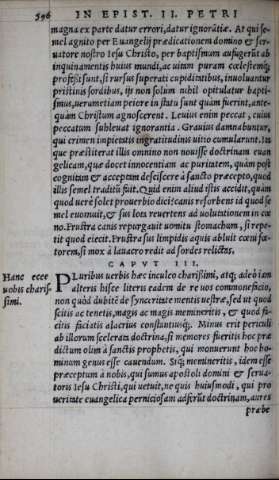 596 IN EPIST. II. PETRI
magna ex parte datur errori, datur ignorātiæ. At qui se-
mel agnito per Euangelij prædicationem domino & ser-
uatore nostro Iesu Christo, per baptismum aufugerūt ab
inquinamentis huius mundi, ac uitam puram cœlestemq;
professi sunt, si rursus superati cupiditatibus, inuoluantur
pristinis sordibus, ijs non solum nihil opitulatur baptis-
mus, uerumetiam peiore in statu sunt quàm fuerint, ante-
quàm Christum agnoscerent. Leuius enim peccat, cuius
peccatum subleuat ignorantia. Grauius damnabuntur,
qui crimen impietatis ingratitudinis uitio cumularunt. Itaque
præstiterat illis omnino non nouisse doctrinam euan
gelicam, quæ docet innocentiam ac puritatem, quàm post
cognitam & acceptam desciscere à sancto præcepto, quod
illis semel traditū fuit. Quid enim aliud istis accidit, quàm
quod uerè solet prouerbio dici: canis resorbens id quod se
mel euomuit, & sus lota reuertens ad uolutationem in cœ
no. Frustrà canis repurgauit uomitu stomachum, si repe-
tit quod eiecit. Frustrà sus limpidis aquis abluit cœni fœ-
torem, si mox à lauacro redit ad sordes relictas.
CAPVT III.
Hanc ecce
uobis charis-
simi.
PLuribus uerbis hæc inculco charissimi, atq; adeò iam
alteris hisce literis eadem de re uos commonefacio,
non quòd dubitē de synceritate mentis uestræ, sed ut quod
scitis ac tenetis, magis ac magis memineritis, & quod fa-
citis faciatis alacrius constantiusq;. Minus erit periculi
ab illorum scelerata doctrina, si memores fueritis hoc præ
dictum olim à sanctis prophetis, qui monuerunt hoc ho-
minum genus esse cauendum. Sitq; memineritis, idem esse
præceptum à nobis, qui sumus apostoli domini & serua-
toris Iesu Christi, qui uetuit, ne quis huiusmodi, qui pro
ueritate euangelica perniciosam adferūt doctrinam, aures
præbe